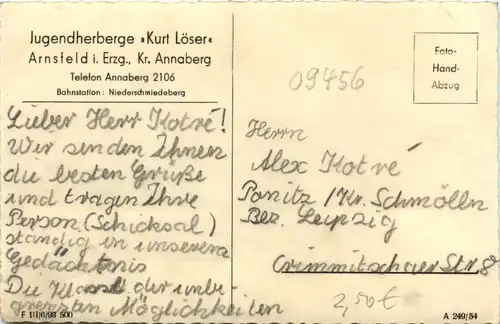 Jugendherberge »Kurt Löser«
Arnsfeld i. Erzg., Kr. Annaberg
Telefon Annaberg 2106
Bahnstation: Niederschmiedeberg
Lieber Herr Kotré!
Wir senden Ihnen
die besten Grüße
und tragen Ihre
Person (Schicksal)
ständig in unserem
Gedächtnis
Die Klasse der unbe-
grenzten Möglichkeiten
F 111/6/93 500
09456
Foto-
Hand-
Abzug
Herrn
Alex Kotré
Ponitz / Kr. Schmölln
Bez. Leipzig
Crimmitschauer Str. 8
2,50€
A 249/54